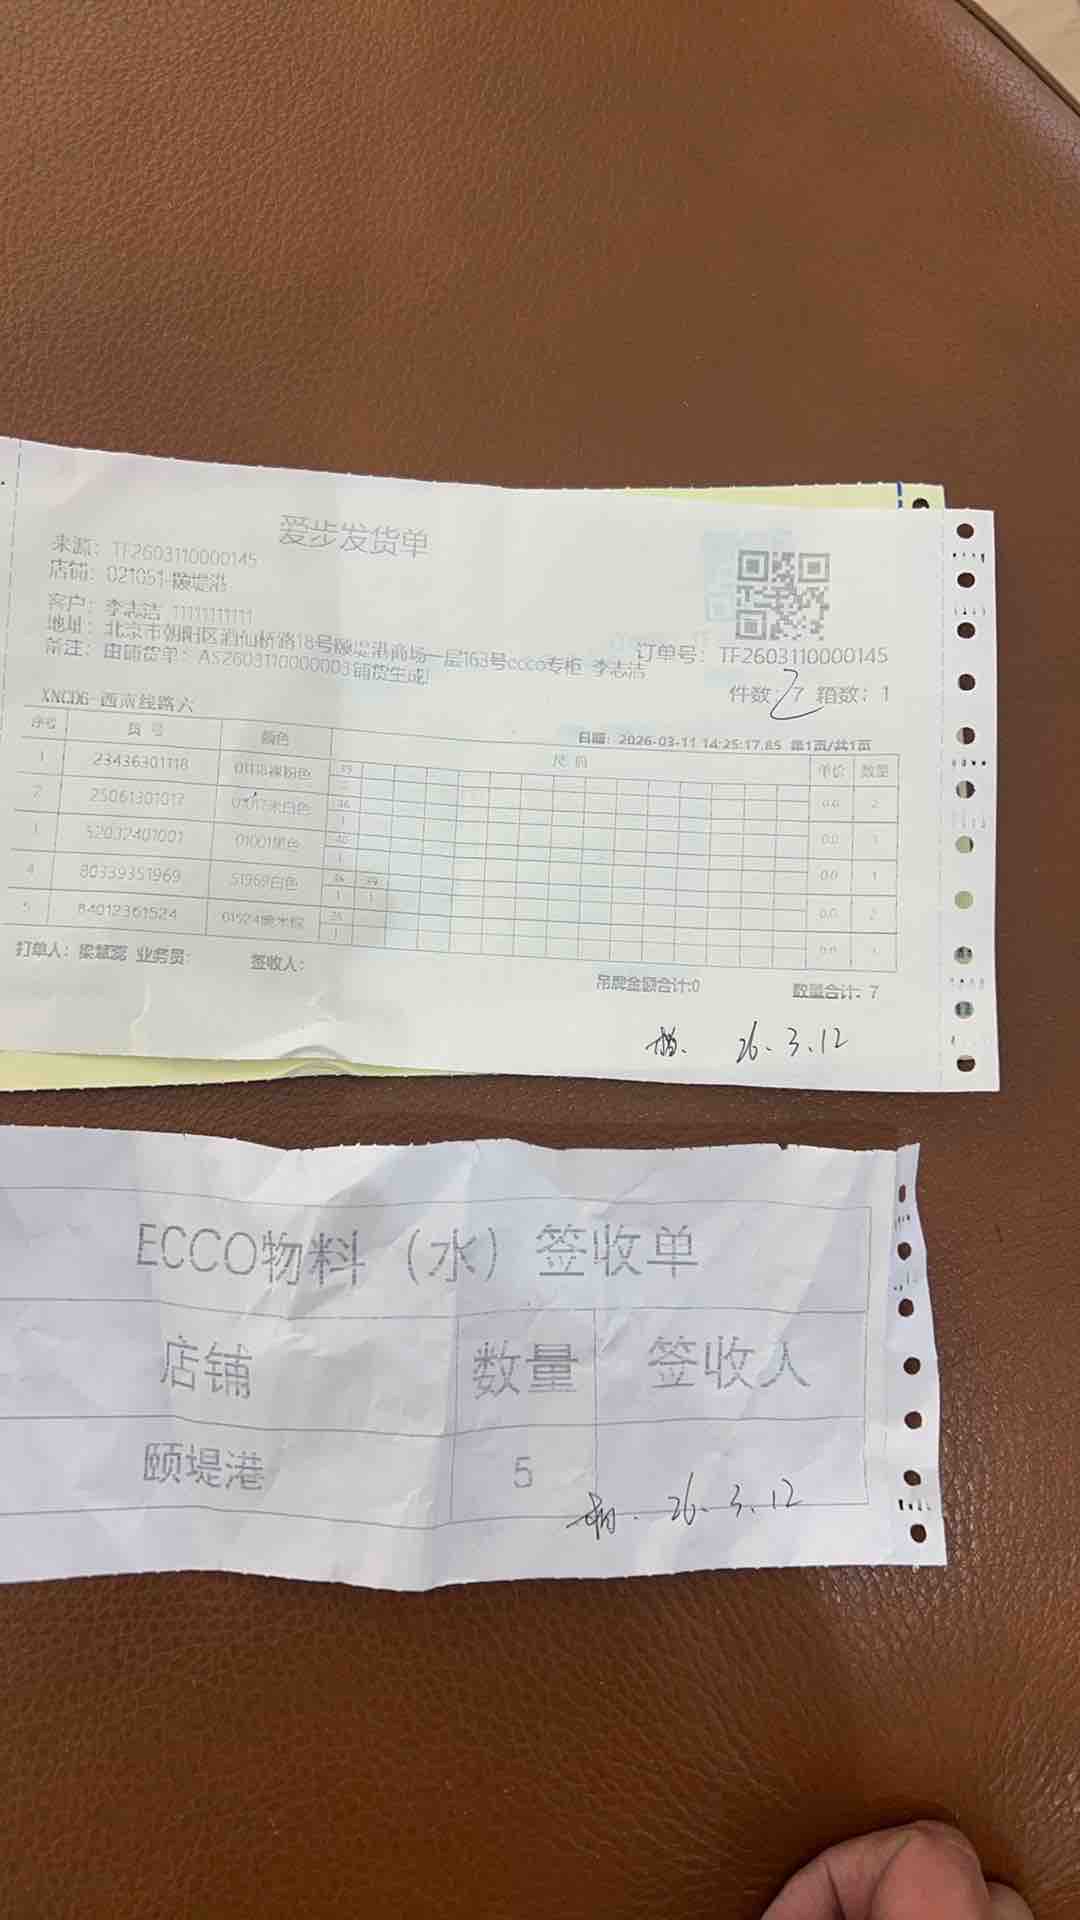 爱步发货单
来源：TF2603110000145
店铺：021051-颐堤港
客户：李志洁 11111111111
地址：北京市朝阳区酒仙桥路18号颐堤港商场一层163号ecco专柜 李志洁
备注：由铺货单：AS2603110000003铺货生成!
订单号：TF2603110000145
件数：7 箱数：1
XNCD6-西南线路六
日期：2026-03-11 14:25:17.85 第1页/共1页
序号 货号 颜色 尺码 单价 数量
1 23436301118 01118裸粉色 39 0.0 2
2 25061301017 01017米白色 36 1 0.0 1
52032401001 01001黑色 40 1 0.0 1
4 80339351969 51969白色 38 39 1 1 0.0 2
5 84012361524 01524 1 0.0 1
打单人：梁慧蕊 业务员： 签收人：
吊牌金额合计:0 数量合计：7
26.3.12
ECCO物料（水）签收单
店铺 数量 签收人
颐堤港 5
26.3.12